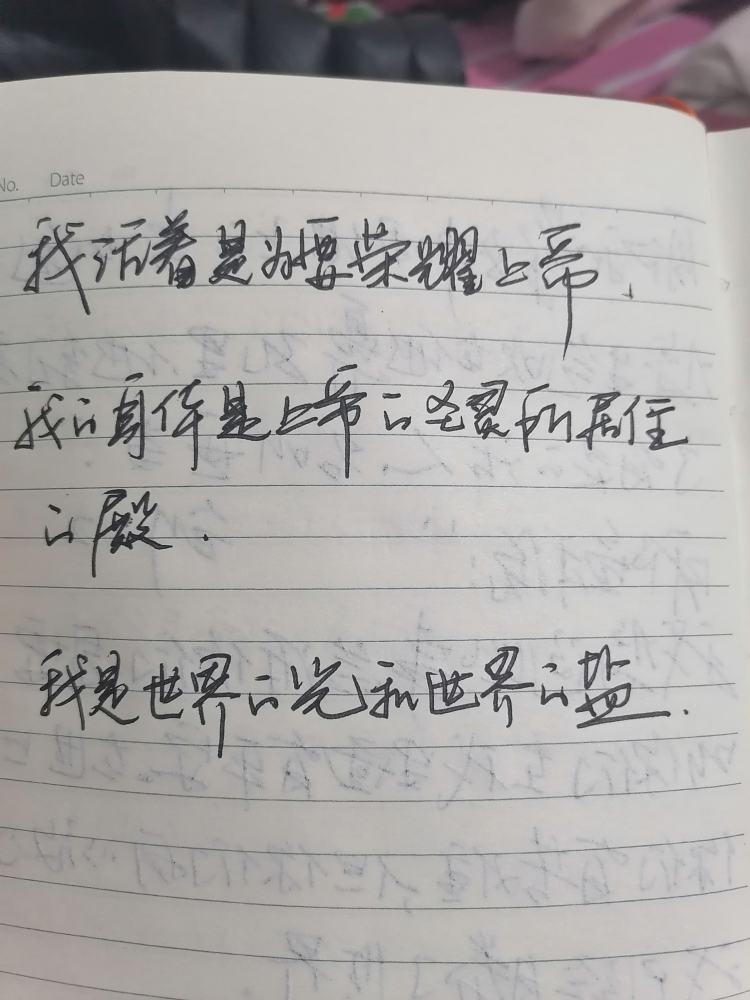 No. Date
我活着是为要荣耀上帝.
我的身体是上帝的圣灵所居住
的殿.
我是世界的光和世界的盐.